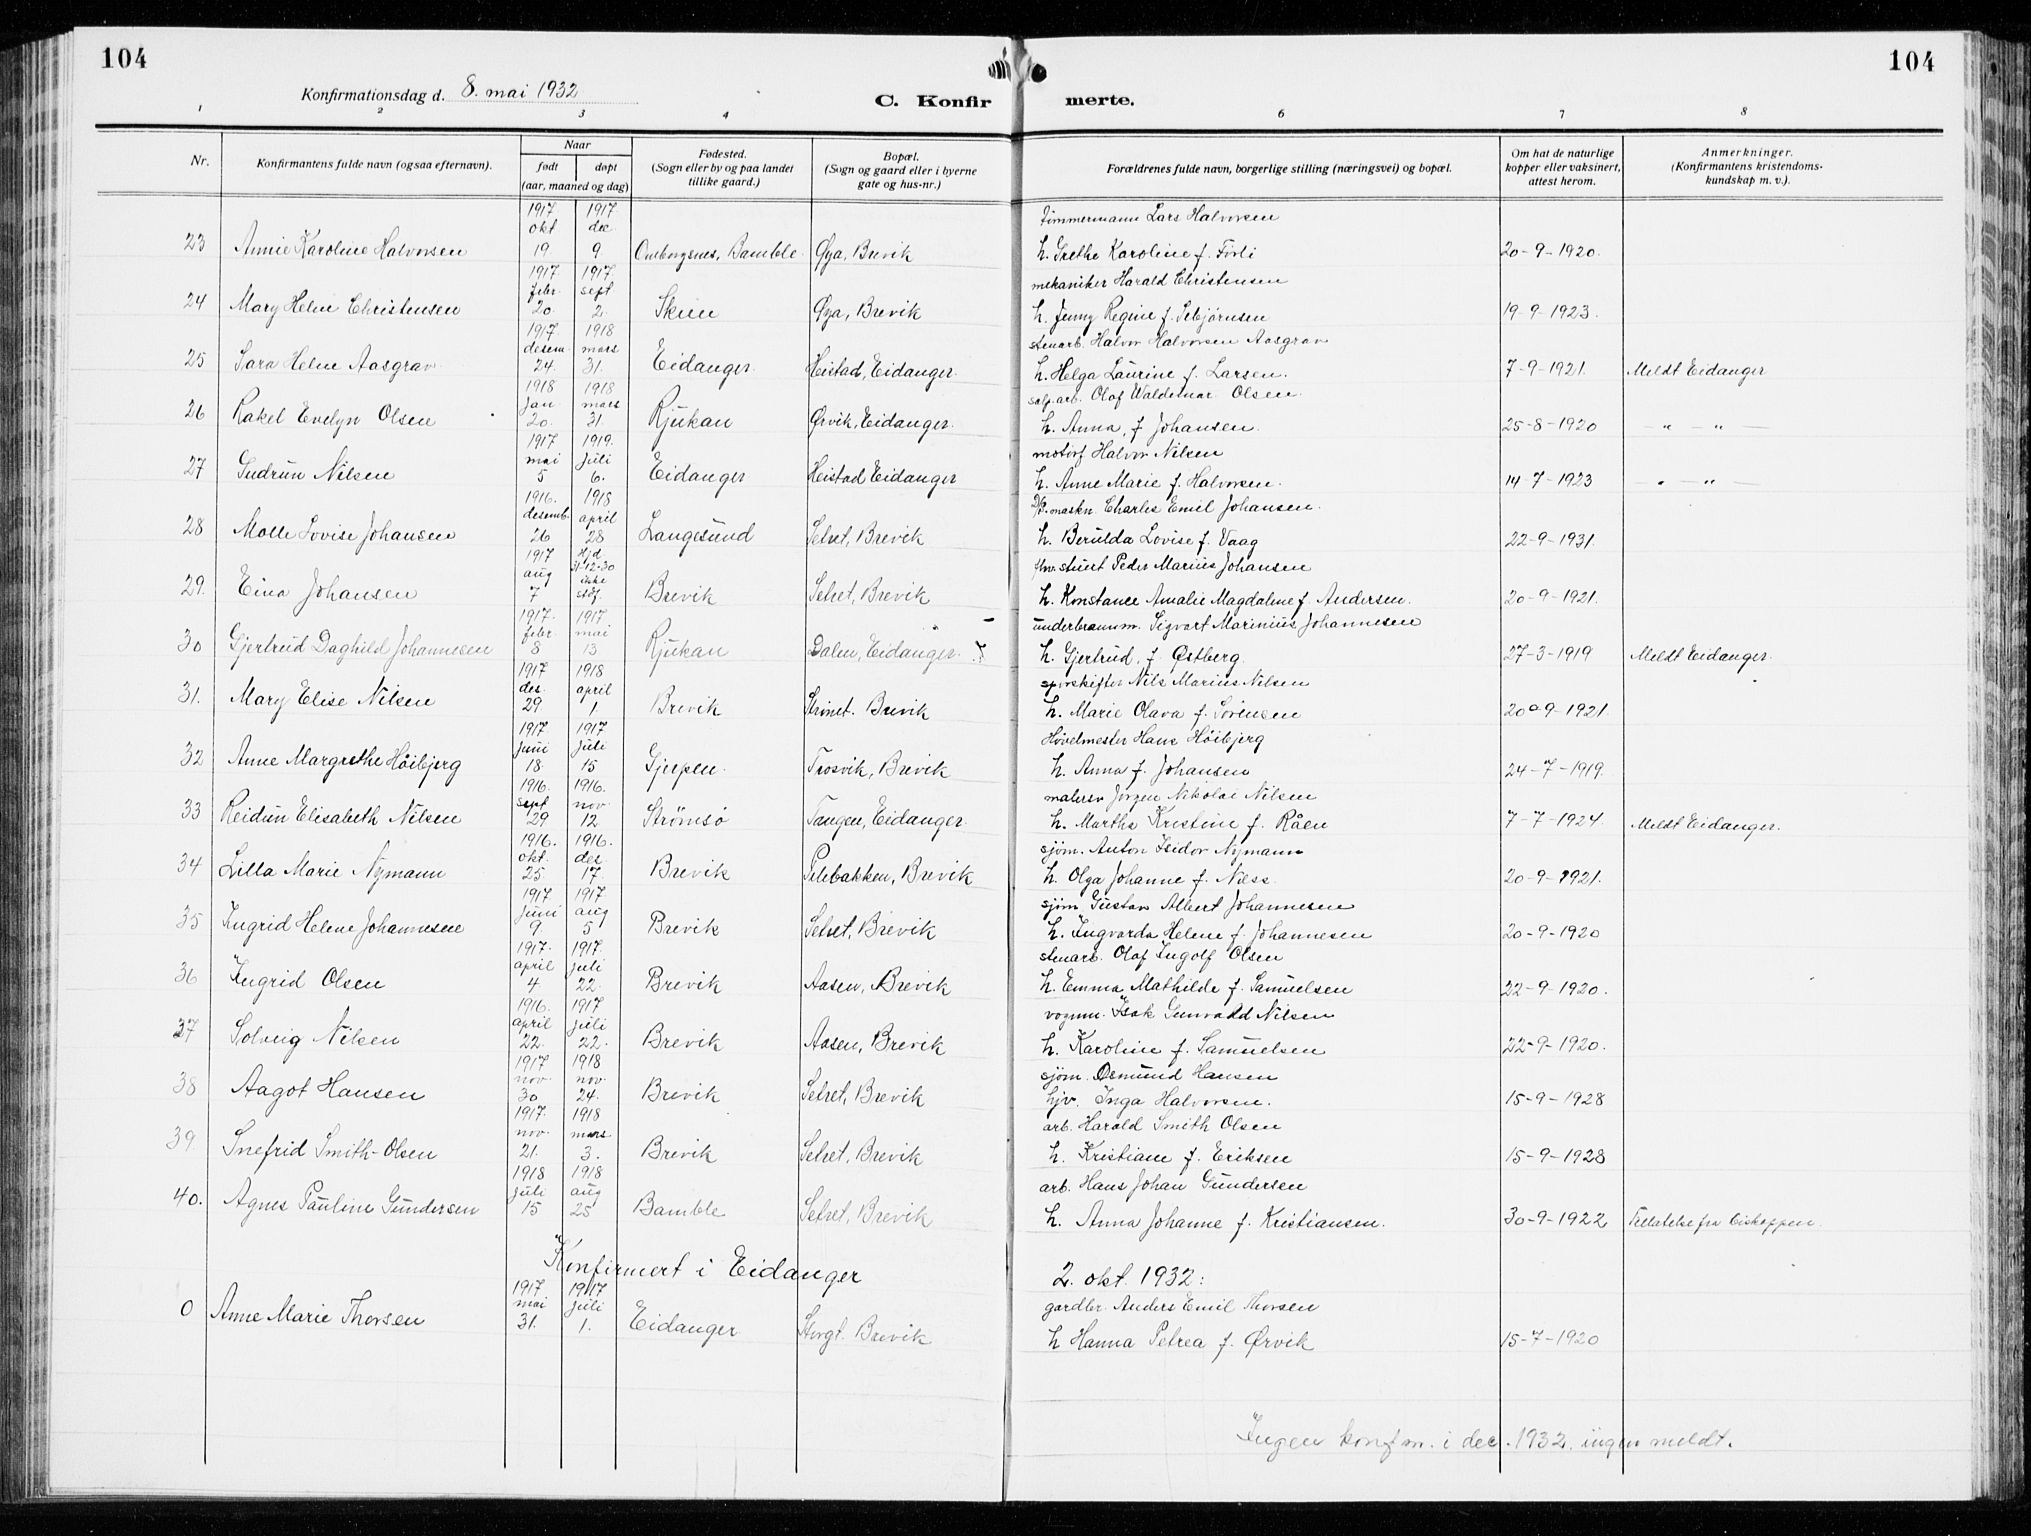 104
104
Konfirmationsdag d. 8. mai 1932
C. Konfir merte.
1 2 3 4 6 7 8
Nr. Konfirmantens fulde navn (ogsaa efternavn). Naar født døpt (aar, maaned og dag) Fødested. (Sogn eller by og paa landet tillike gaard.) Bopæl. (Sogn og gaard eller i byerne gate og hus-nr.) Forældrenes fulde navn, borgerlige stilling (næringsvei) og bopæl. Om hat de naturlige kopper eller vaksinert, attest herom. Anmerkninger. (Konfirmantens kristendomskundskap m. v.).
1917 1917 tømmermann Lars Halvorsen
okt dec
23 Annie Karoline Halvorsen 19 9 Omborgsnes, Bamble Øya, Brevik h. Grethe Karoline f. Förli 20-9-1920.
1917 1917 mekaniker Harald Christensen
febr. sept
24 Mary Helene Christensen 20. 2. Skien Øya, Brevik h. Jenny Regine f. Sebjørnsen 19-9-1923.
1917 1918 stenarb. Halvor Halvorsen Aasgrav
desem. mars
25 Sara Helene Aasgrav 24. 31. Eidanger. Heistad, Eidanger. h. Helga Laurine f. Larsen. 7-9-1921. Meldt Eidanger
1918 1918 salp.arb. Olaf Waldemar Olsen.
jan. mars
26 Rakel Evelyn Olsen 20. 31. Rjukan Ørvik, Eidanger. h. Anna, f Johansen. 25-8-1920 — " — " —
1917 1919. motorf Halvor Nilsen
mai juli
27 Gudrun Nilsen 5 6. Eidanger Heistad Eidanger h. Anne Marie f. Halvorsen. 14-7-1923 — " — " —
1916. 1918 maskn. Charles Emil Johansen.
desemb. april
28 Molle Lovise Johansen 26 28 Langesund Setret, Brevik h. Berulda Lovise f. Vaag 22-9-1931.
1917 hjd. stuert Peder Marius Johansen
aug 31-12-30 ikke
29. Eina Johansen 7 stdf. Brevik Setret, Brevik h. Konstance Amalie Magdalene f. Andersen. 20-9-1921.
1917. 1917 underbrannm. Sigvart Marinius Johannesen
febr. mai
30 Gjertrud Daghild Johannesen 8 13 Rjukan Dalen, Eidanger. h. Gjertrud, f. Østberg. 27-3-1919 Meldt Eidanger.
1917 1918 sporskifter Nils Marius Nilsen
des. april
31. Mary Elise Nilsen 29. 1. Brevik Strömet. Brevik h. Marie Olava f. Sörensen 20-9-1921.
1917. 1917 Høvelmester Hans Höibjerg
juni juli
32 Anne Margrethe Höibjerg 18. 15 Gjerpen. Trosvik, Brevik h. Anna f. Johansen 24-7-1919.
1916. 1916. malersv Jørgen Nikolai Nilsen
sept nov.
33 Reidun Elisabeth Nilsen 29 12 Strömsö Tangen, Eidanger h. Martha Kristine f. Råen 7-7-1924. Meldt Eidanger.
1916. 1916. sjøm. Anton Isidor Nymann
okt. des
34 Lilla Marie Nymann 25 17. Brevik Pilebakken, Brevik h. Olga Johanne f. Næss. 20-9-1921.
1917 1917 sjöm Gustav Albert Johannesen
juni aug
35 Ingrid Helene Johannesen 9. 5 Brevik Setret, Brevik h. Ingvarda Helene f. Johannesen 20-9-1920
1917. 1917. stenarb. Olaf Ingolf Olsen
april juli
36 Ingrid Olsen 4 22. Brevik Aasen, Brevik h. Emma Mathilde f. Samuelsen 22-9-1920.
1916. 1917 vognm. Isak Gunvald Nilsen
april juli
37 Solveig Nilsen 22. 22. Brevik Aasen, Brevik h. Karoline f. Samuelsen 22-9-1920.
1917 1918 sjöm. Osmund Hansen
nov. nov.
38 Aagot Hansen 30 24. Brevik Setret, Brevik hjv. Inga Halvorsen. 15-9-1928
1917. 1918 arb. Harald Smith Olsen
nov. mars
39. Snefrid Smith-Olsen 21. 3. Brevik Setret, Brevik h. Kristiane f. Eriksen 15-9-1928
1918 1918 arb. Hans Johan Gundersen
juli aug
40. Agnes Pauline Gundersen 15 25 Bamble Setret, Brevik h. Anna Johanne f. Kristiansen. 30-9-1922 Tillatelse fra biskoppen.
Konfirmert i Eidanger 2. okt. 1932:
1917 1917 gardbr. Anders Emil Thorsen
mai juli
0 Anne Marie Thorsen 31. 1. Eidanger Storgt. Brevik h Hanna Petrea f. Ørvik 15-7-1920
Ingen konfm. i dec. 1932, ingen meldt.